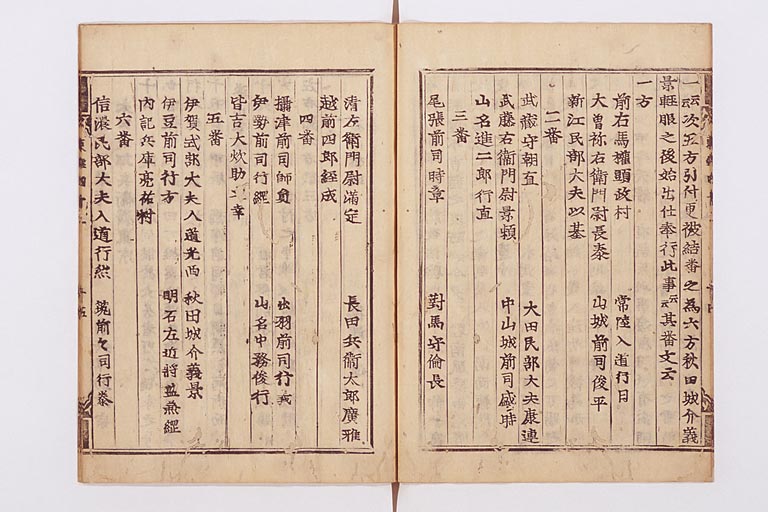 一云次五方引付更被結番之為六方秋田城介義
景軽服之後始出仕奉行此事云其番文云
一方
前右馬權頭政村　常陸入道行日
大曽祢右衛門尉長泰　山城前司俊平
新江民部大夫以基
二番
武藏守朝直　大田民部大夫康連
武藤右衛門尉景頼　中山城前司盛時
山名進二郎行直
三番
尾張前司時章　對馬守倫長
清左衛門尉滿定　長田兵衛太郎廣雅
越前四郎経成
四番
攝津前司師員　出羽前司行義
伊勢前司行綱　山名中務俊行
皆吉大炊助文章
五番
伊賀式部大夫入道光西　秋田城介義景
伊豆前司行方　明石左近將監兼綱
内記兵庫亮祐村
六番
信濃民部大夫入道行然　筑前々司行泰